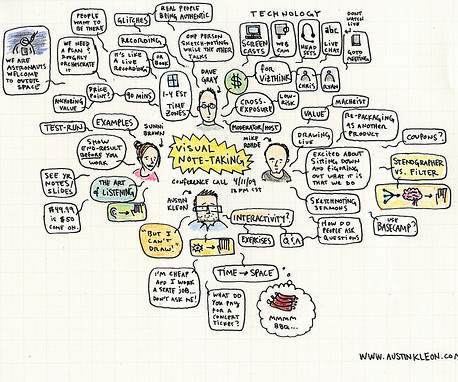 PEOPLE
WANT TO
BE THERE
GLITCHES
REAL PEOPLE
BEING AUTHENTIC
TECHNOLOGY
DON'T
WATCH
LIVE
WE ARE
ASTRONAUTS
WELCOME TO
OUTER
SPACE
WE NEED
A PLAN?
ROUGHLY
ORCHESTRATE
IT
RECORDING
IT'S LIKE
A LIVE
RECORDING
OR
BOOK
ONE PERSON
SKETCH-NOTING
WHILE THE OTHER
TALKS
SCREEN
CASTS
WEB
CAM
HEAD
SETS
abc
LIVE
CHAT
GOTO
MEETING
DAVE
GRAY
$
FOR
VIZTHINK
CHRIS
RYAN
ANCHORING
VALUE
PRICE
POINT?
90 MINS
1-4 EST
TIME
ZONES
CROSS-
EXPOSURE
LOW-
RISK
VALUE
MACHEIST
TEST-RUN
EXAMPLES
SUNNI
BROWN
MODERATOR/HOST
MIKE
ROHDE
DRAWING
LIVE
RE-PACKAGING
AS ANOTHER
PRODUCT
COUPONS?
SHOW
END-RESULT
BEFORE YOU
WORK
VISUAL
NOTE-TAKING
EXCITED ABOUT
SITTING DOWN
AND FIGURING
OUT WHAT IT IS
THAT WE DO
STENOGRAPHER
VS. FILTER
SEE YR
NOTES/
SLIDES
THE ART
OF LISTENING
CONFERENCE CALL 4/21/09
12 PM CST
AUSTIN
KLEON
SKETCHNOTING
SERMONS
$49.99
IS $50
COME ON.
INTERACTIVITY?
HOW DO
PEOPLE ASK
QUESTIONS
USE
BASECAMP?
"BUT I
CAN'T
DRAW!"
EXERCISES
Q&A
I'M CHEAP
AND I WORK
A STATE JOB...
DON'T ASK ME!
TIME → SPACE
WHAT DO
YOU PAY
FOR A
CONCERT
TICKET?
MMMM
BBQ...
WWW.AUSTINKLEON.COM